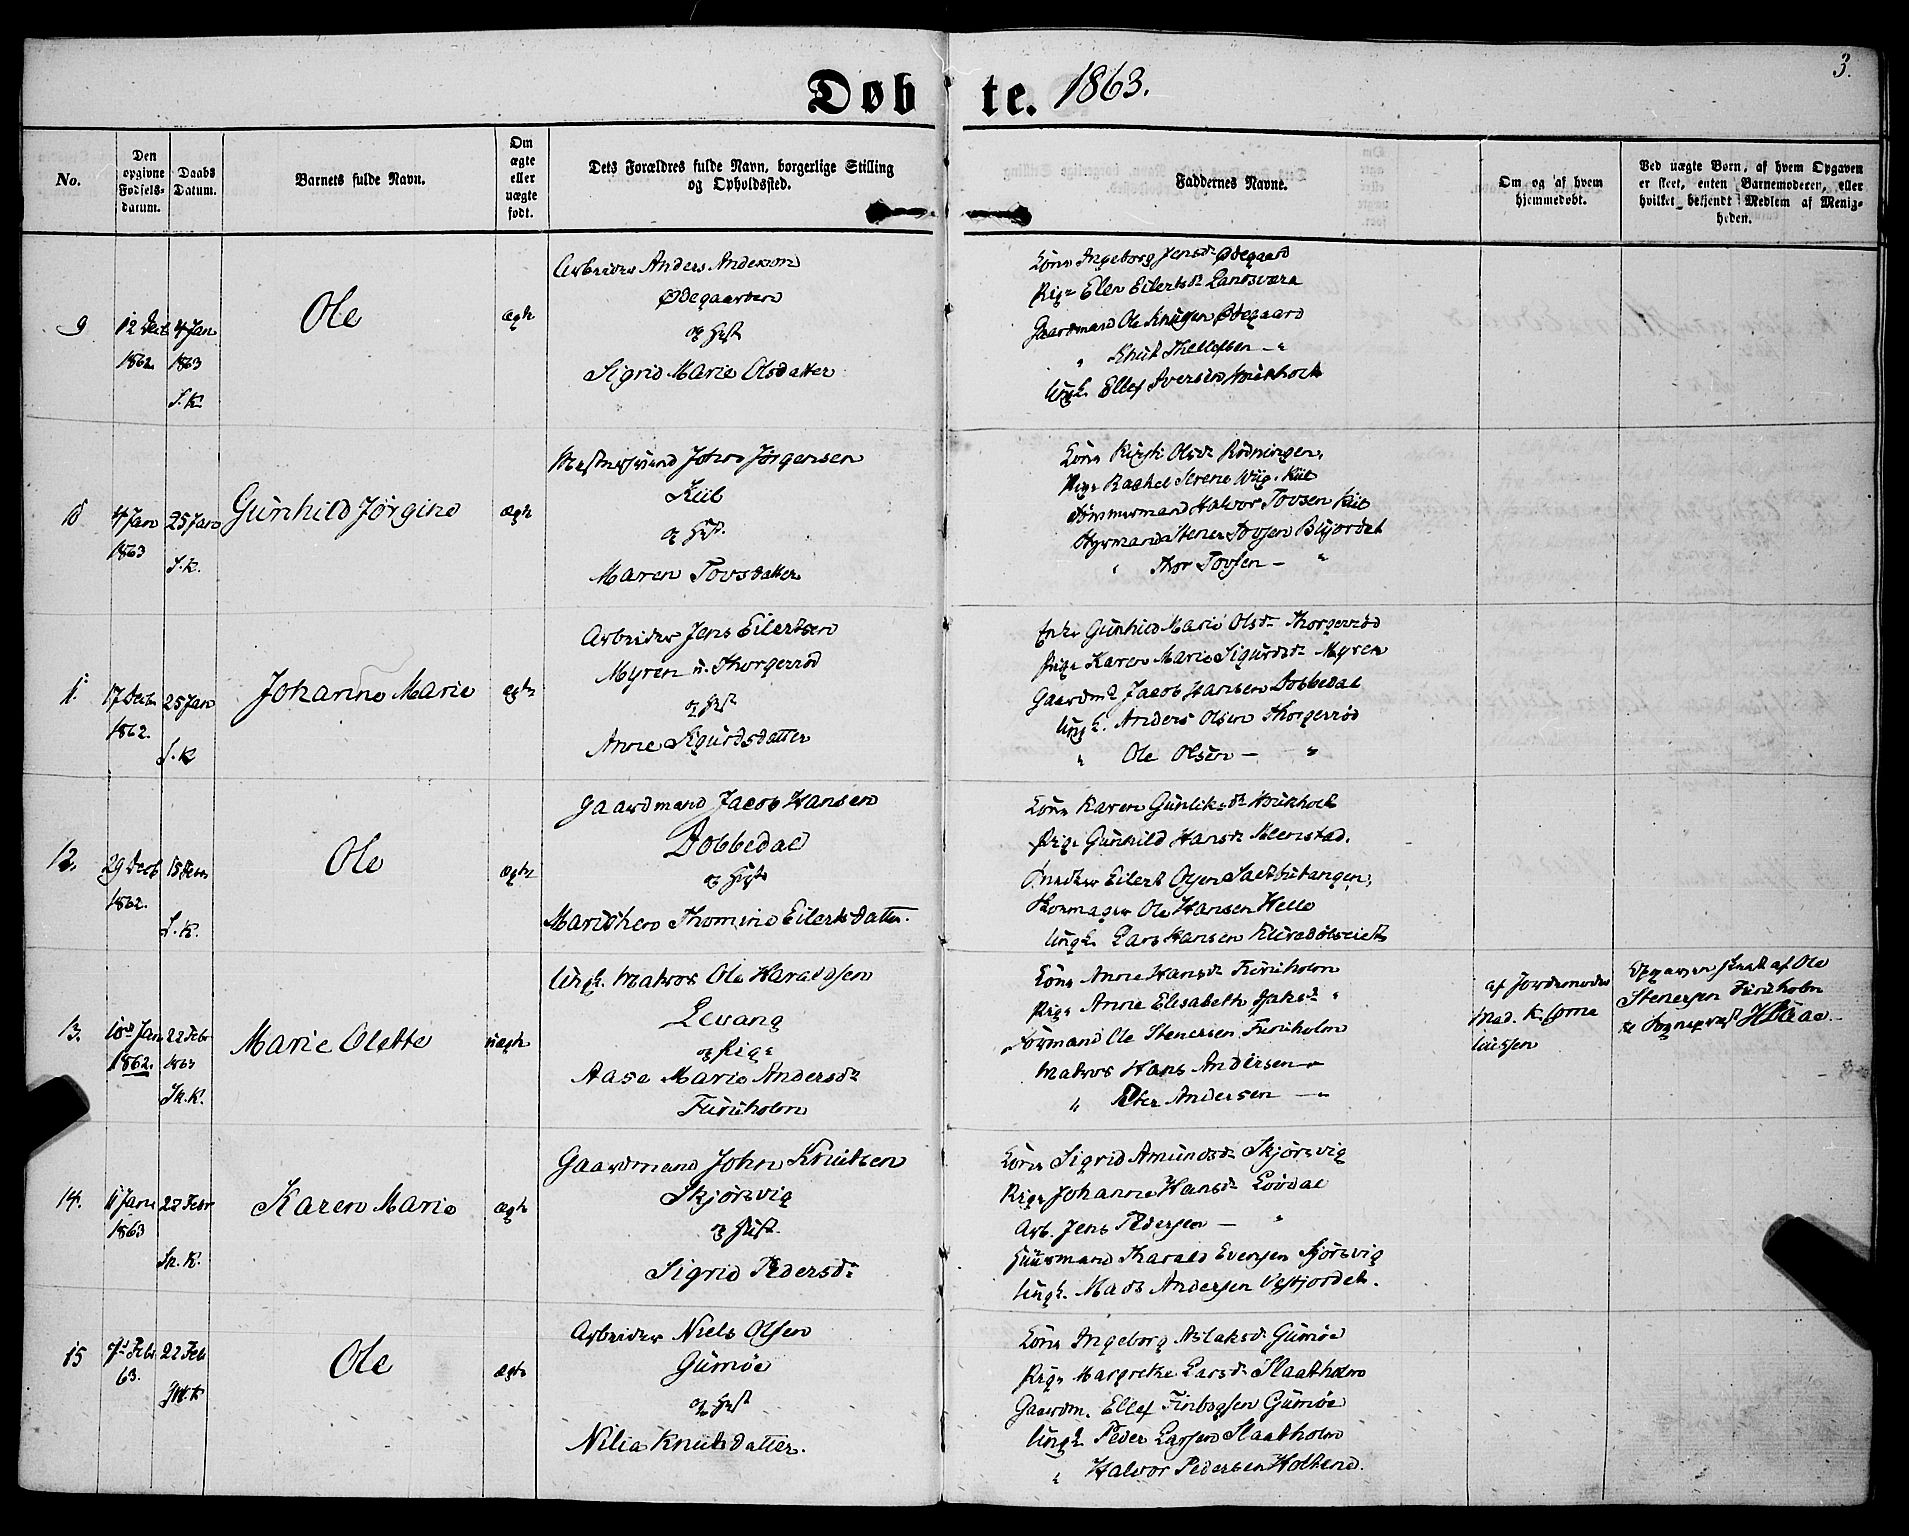 3.
Døbte. 1863.
No.
Den opgivne Fødsels-datum.
Daabs Datum.
Barnets fulde Navn.
Om ægte eller uægte født.
Dets Forældres fulde Navn, borgerlige Stilling og Opholdssted.
Faddernes Navne.
Om og af hvem hjemmedøbt.
Ved uægte Børn, af hvem Opgaven er skeet, enten Barnemoderen, eller hvilket bekjendt Medlem af Menigheden.
9
12 Decb 1862
4 Jan 1863
S. K.
Ole
ægte
Arbeider Anders Andersen
Ødegaarden
og Hust
Sigrid Marie Olsdatter
Kone Ingeborg Jensdr Ødegaard
Pige Elen Eilertsdr Landsværk
Gaardmand Ole Knutsen Ødegaard
" Knut Thellefsen — "
Ungk. Ellef Iversen
10
4 Jan 1863
25 Jan
S. K.
Gunhild Jørgine
ægte
John Jørgensen
Kiil
og Hust.
Maren Tovsdatter
Kone Olsdr Rødningen,
Pige Rachel Serene Wiig. Kiil
Tømmermand Halvor Tovsen Kiil
Styrmand Stener Tovsen
" Thor Tovsen — "
11
17 Decbr 1862.
25 Jan
S. K
Johanne Marie
ægte
Arbeider Jens Eilertsen
Myren u. Thorgersrød
og Hust
Anne Sigurdsdatter
Enke Gunhild Marie Olsdr Thorgersrød
Pige Karen Marie Sigurdsdr Myren
Gaardmd Jacob Hansen Dobbedal
Ungk. Anders Olsen Thorgersrød
" Ole Olsen — "
12.
29 Decb 1862.
15 Febr
S. K.
Ole
ægte
Gaardmand Jacob Hansen
Dobbedal
og Hust
Thomine Eilertsdatter.
Kone Karen Gunliksdr
Pige Gunhild Hansdr
Eilert Olsen
Skomager Ole Hansen Helle
Ungk. Lars Hansen
13.
10 Jan 1862.
22 Febr 1863
Sk. K.
Marie Olette
uægte
Ungk. Matros Ole Haraldsen
Levang
og Pige
Aase Marie Andersdr
Furuholm
Kone Anne Hansdr Furuholm
Pige Anne Elisabeth "
Formand Ole Stenersen Furuholm
Matros Hans Andersen — "
" Peter Andersen — "
af Jordemoder
Mad. K.
Opgaven skeet af Ole
Stenersen Furuholm
til Sognepræst
14.
11 Jan 1863
22 Febr
Sk. K.
Karen Marie
ægte
Gaardmand John Knutsen
Skjørsvig
og Hust.
Sigrid Pedersdr
Kone Sigrid Amundsdr Skjørsvig
Pige Johanne Hansdr Løvdal
Arb. Jens Pedersen — "
Huusmand Harald Evensen Skjørsvig
Ungk. Mads Andersen Vestfjordet.
15
7de Febr 63.
22 Feb
Sk. K
Ole
ægte
Arbeider Niels Olsen
Gumøe
og Hust
Nilia Knutsdatter.
Kone Ingeborg Aslaksdr Gumøe
Pige Margrethe Larsdr Slaatholm
Gaardm. Ellef Finbogsen Gumøe
Ungk. Peder Larsen Slaatholm
" Halvor Pedersen